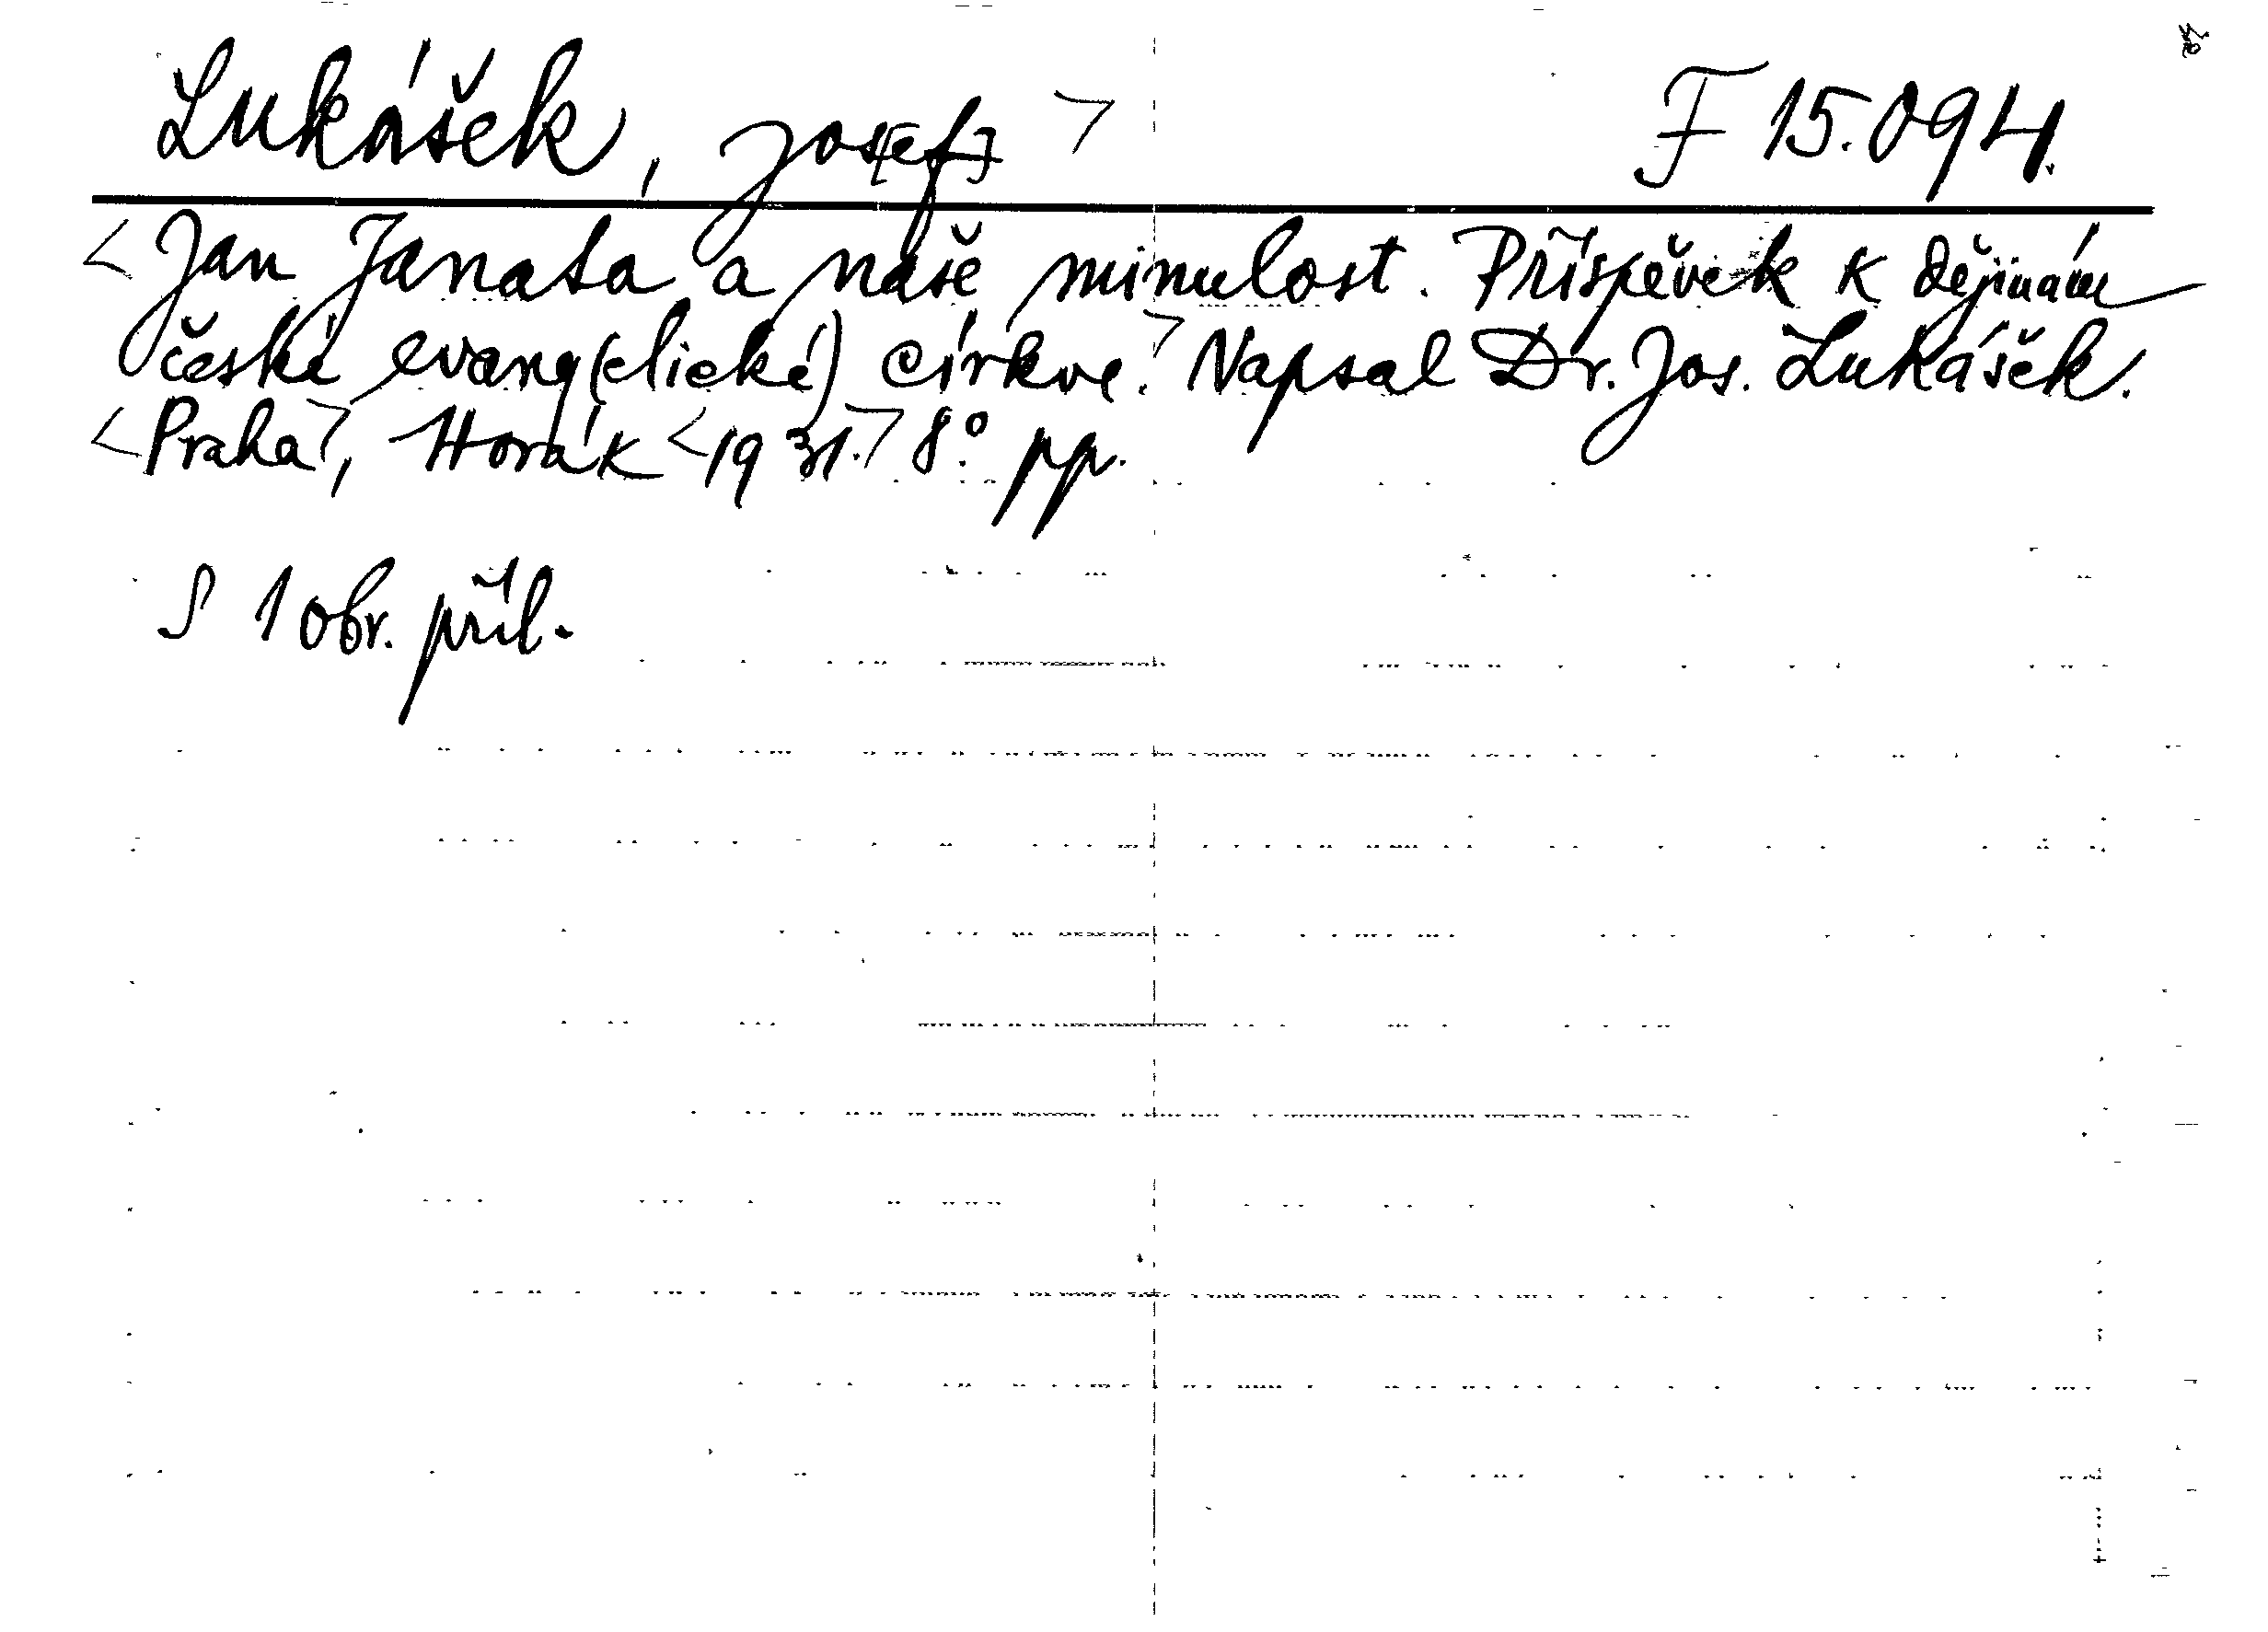 Lukášek, Jos[ef] > F 15.094.
< Jan Janata a naše minulost. Příspěvek k dějinám
české evang(elické) církve. > Napsal Dr. Jos. Lukášek.
< Praha >, Horák < 1931. > 8°. pp.
S 1 obr. příl.